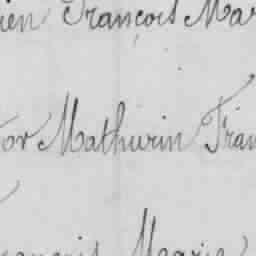 ien François Mar
or Mathurin Fran
rançois Marie